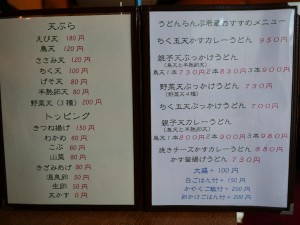 天ぷら
えび天 180円
鳥天 120円
ささみ天 150円
ちく天 100円
げそ天 100円
半熟卵天 80円
野菜天(3種) 200円
トッピング
きつね揚げ 150円
わかめ 80円
こぶ 60円
山菜 80円
きざみあげ 80円
温泉卵 50円
生卵 50円
天かす 0円
うどんらんぷ おすすめメニュー
ちく玉天かすカレーうどん 950円
親子天ぶっかけうどん
(鳥天と半熟卵天)
鳥天1本730円 2本830円 3本900円
野菜天ぶっかけうどん
(野菜天4種)
730円
ちく玉天ぶっかけうどん
700円
親子天カレーうどん
(鳥天と半熟卵天)
鳥天1本800円 2本900円 3本980円
焼きチーズかすカレーうどん 880円
かす釜揚げうどん 730円
大盛+100円
白ごはん付+150円
かやくご飯付+200円
卵かけごはん付+200円